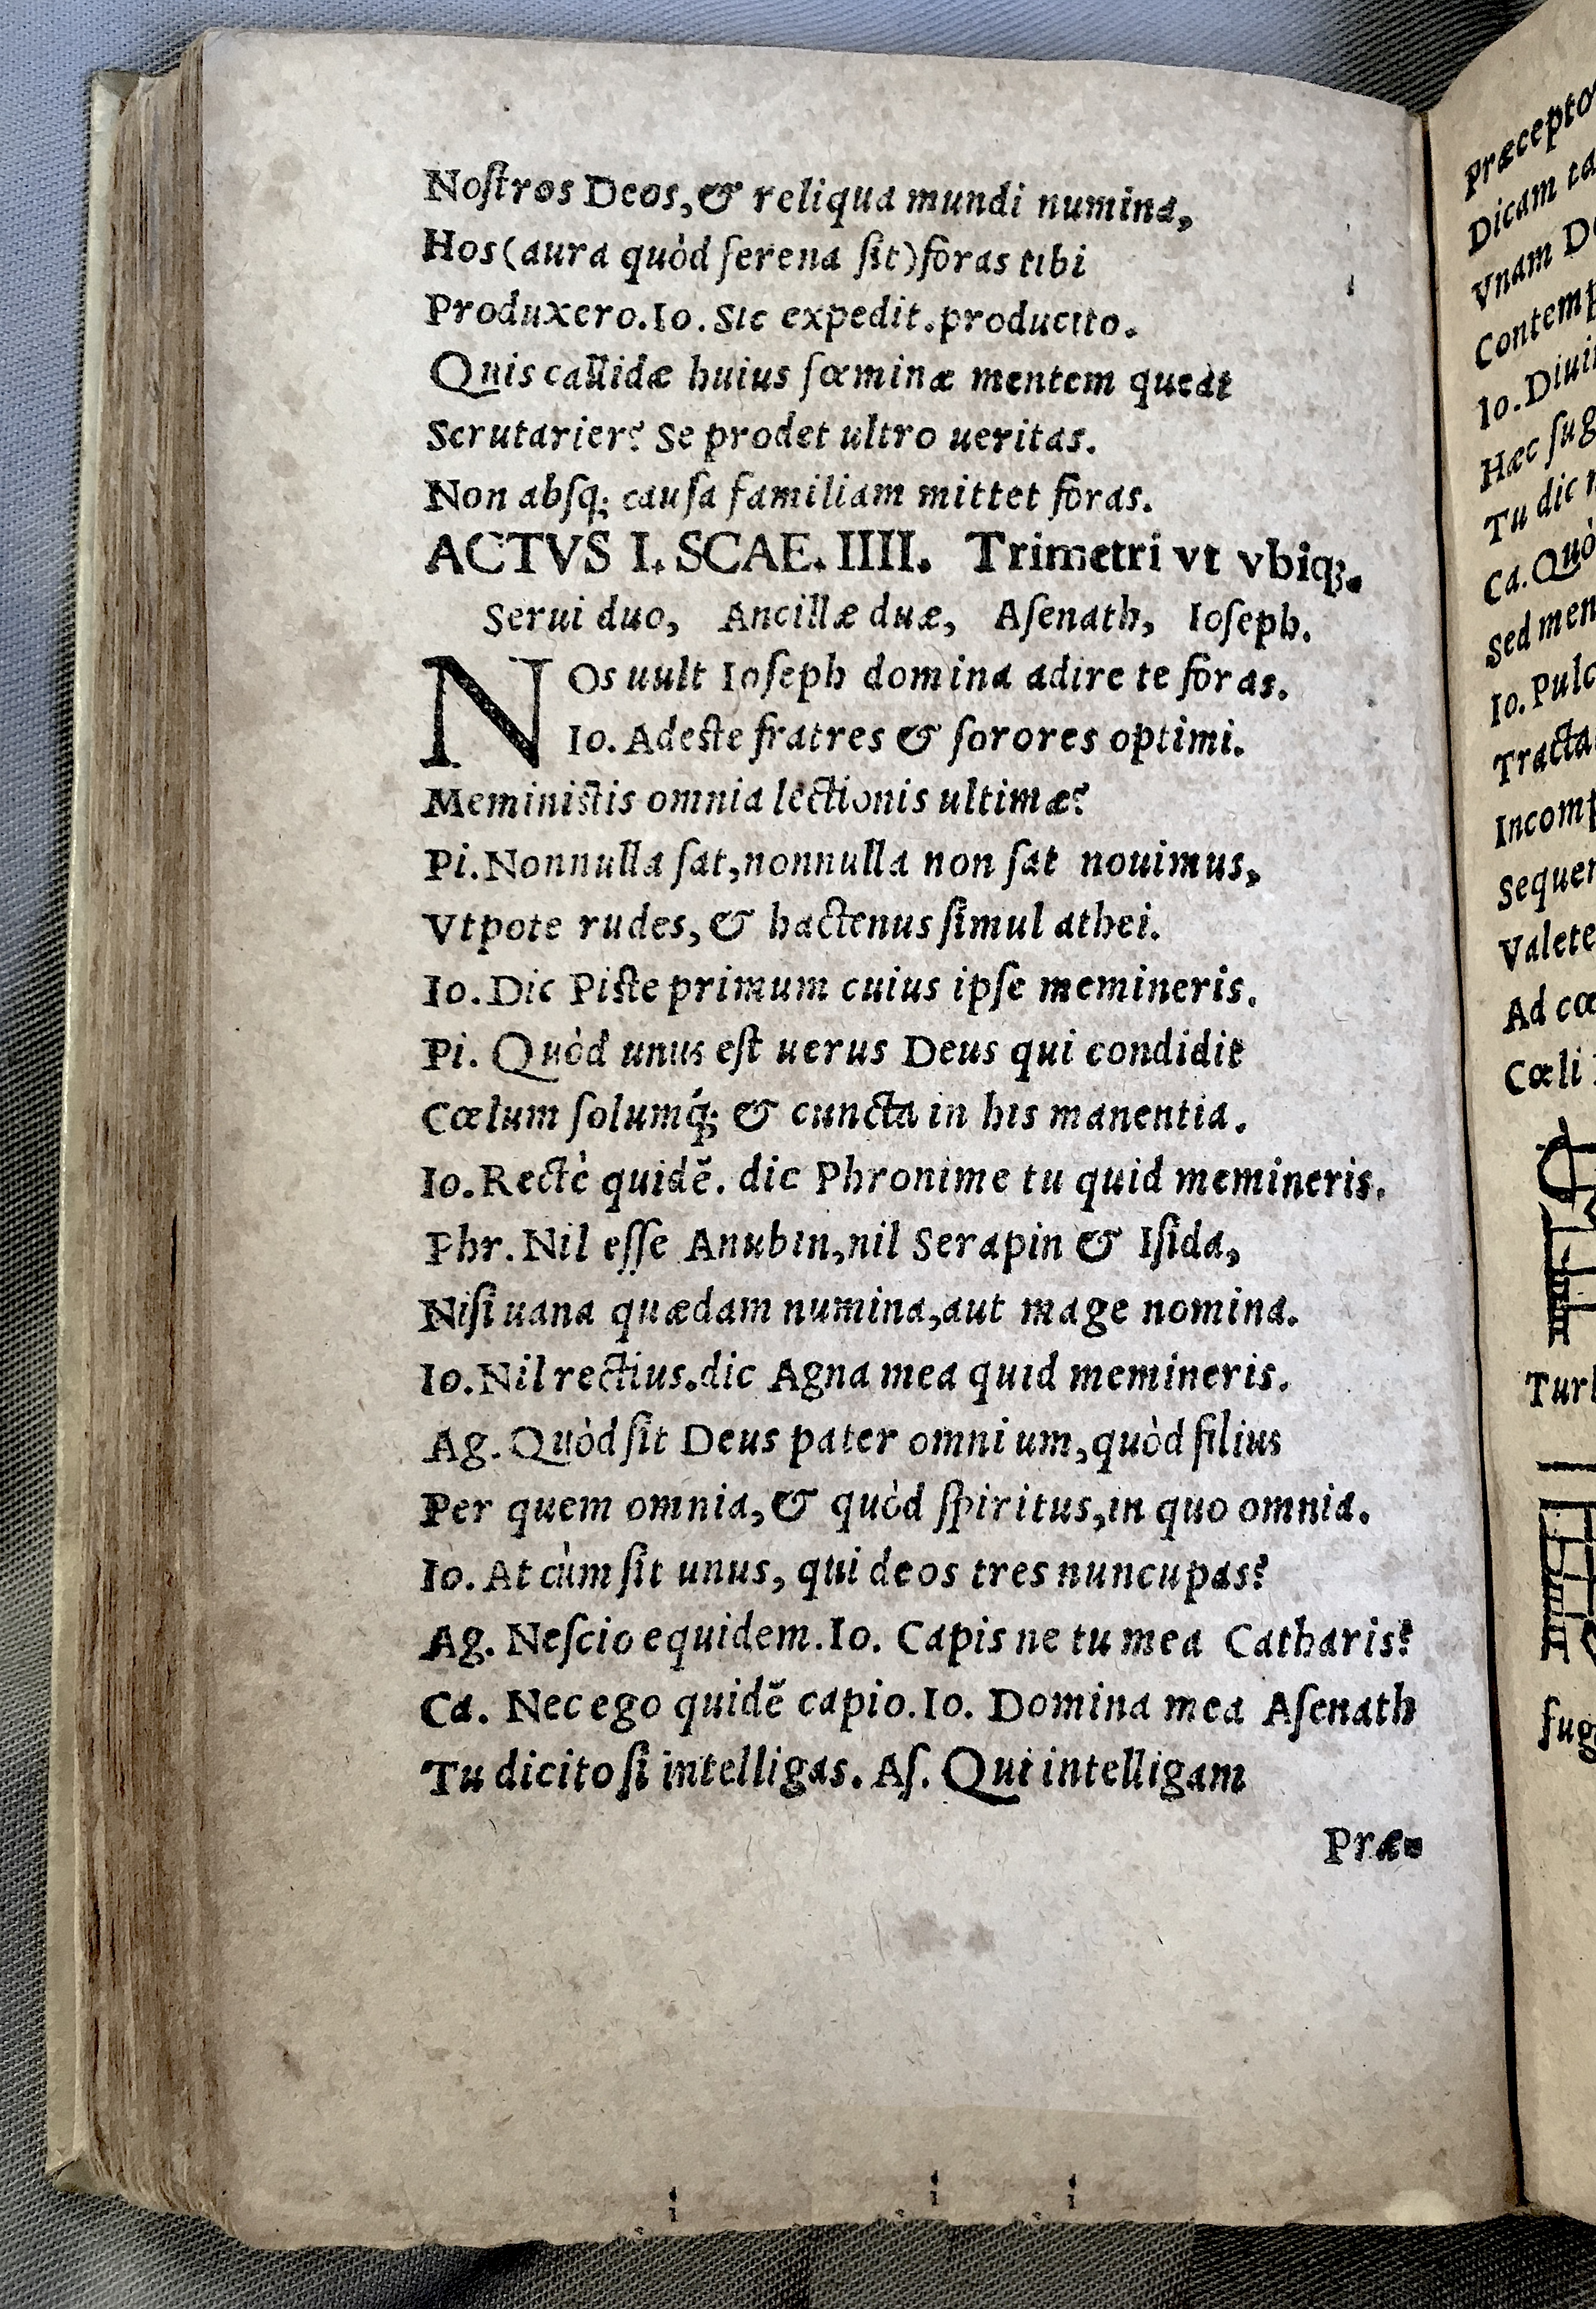 Nostros Deos, & reliqua mundi numina,
Hos (aura quòd serena sit) foras tibi
Produxero. Io. Sic expedit. producito.
Quis callidæ huius fœminæ mentem queat
Scrutarier? Se prodet ultro ueritas.
Non absq; causa familiam mittet foras.
ACTVS I. SCAE. IIII. Trimetri vt vbiq;.
Serui duo, Ancillæ duæ, Asenath, Ioseph.
NOs uult Ioseph domina adire te foras.
Io. Adeste fratres & sorores optimi.
Meministis omnia lectionis ultimæ?
Pi. Nonnulla sat, nonnulla non sat nouimus,
Vtpote rudes, & hactenus simul athei.
Io. Dic Piste primum cuius ipse memineris.
Pi. Quòd unus est uerus Deus qui condidit
Cœlum solumq́; & cuncta in his manentia.
Io. Rectè quidẽ. dic Phronime tu quid memineris.
Phr. Nil esse Anubin, nil Serapin & Isida,
Nisi uana quædam numina, aut mage nomina.
Io. Nil rectius. dic Agna mea quid memineris.
Ag. Quòd sit Deus pater omnium, quòd filius
Per quem omnia, & quòd spiritus, in quo omnia.
Io. At cùm sit unus, qui deos tres nuncupas?
Ag. Nescio equidem. Io. Capis ne tu mea Catharis?
Ca. Nec ego quidẽ capio. Io. Domina mea Asenath
Tu dicito si intelligas. As. Qui intelligam
Præ-
Dicam
Vnam
Io.
Hæc
Tu dic
Ca.
Sed
Io.
Valete
Ad
Cœli